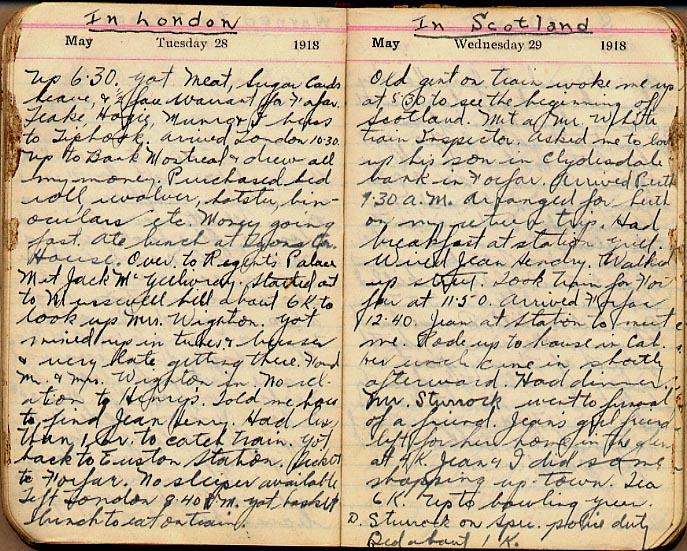 In London
May Tuesday 28 1918
up 6:30. got Meat, Sugar Cards
leave, & ½ fare Warrant for Forfar.
Leake, Hogg, Munro & I buss
to Liphook. arrived London 10:30.
up to Bank Montreal & drew all
my money. Purchased bed
roll revolver, holster, bin-
oculars etc. Money going
fast. ate lunch at Lyons Cor.
House. Over to Regents Palace
Met Jack Mc started at
to Musswell hill about 6 K to
look up Mrs. Wighton. got
mixed up in tubes & busses
& very late getting there. Found
Mr. & Mrs. Wighton in. No rel-
ation to Henrys. Told me how
to find Jean Henry. Had less
than 1 hr. to catch train. got
back to Euston Station. Ticket
to Forfar. No sleeper available
Left London 8:40 P.M. got basket
lunch to eat on train.
In Scotland
May Wednesday 29 1918
Old gent on train woke me up
at 5:30 to see the beginning of
Scotland. Met a Mr. White
train Inspector. asked me to look
up his son in Clydesdale
bank in Forfar. Arrived Perth
9:30 A.M. Arranged for berth
on my return trip. Had
breakfast at station grill.
Wired Jean Hendry. Walked
up street. Took train for For
far at 11:50. Arrived Forfar
12:40. Jean at Station to meet
me. Rode up to house in Cab.
Her uncle came in shortly
afterward. Had dinner.
Mr. Sturrock went to funeral
of a friend. Jeans girl friend
left for her home in the glen
at 4 K. Jean & I did some
shopping up town. Tea
6 K. Up to bowling green.
D. Sturrock on spec. police duty
Bed about 1 K.